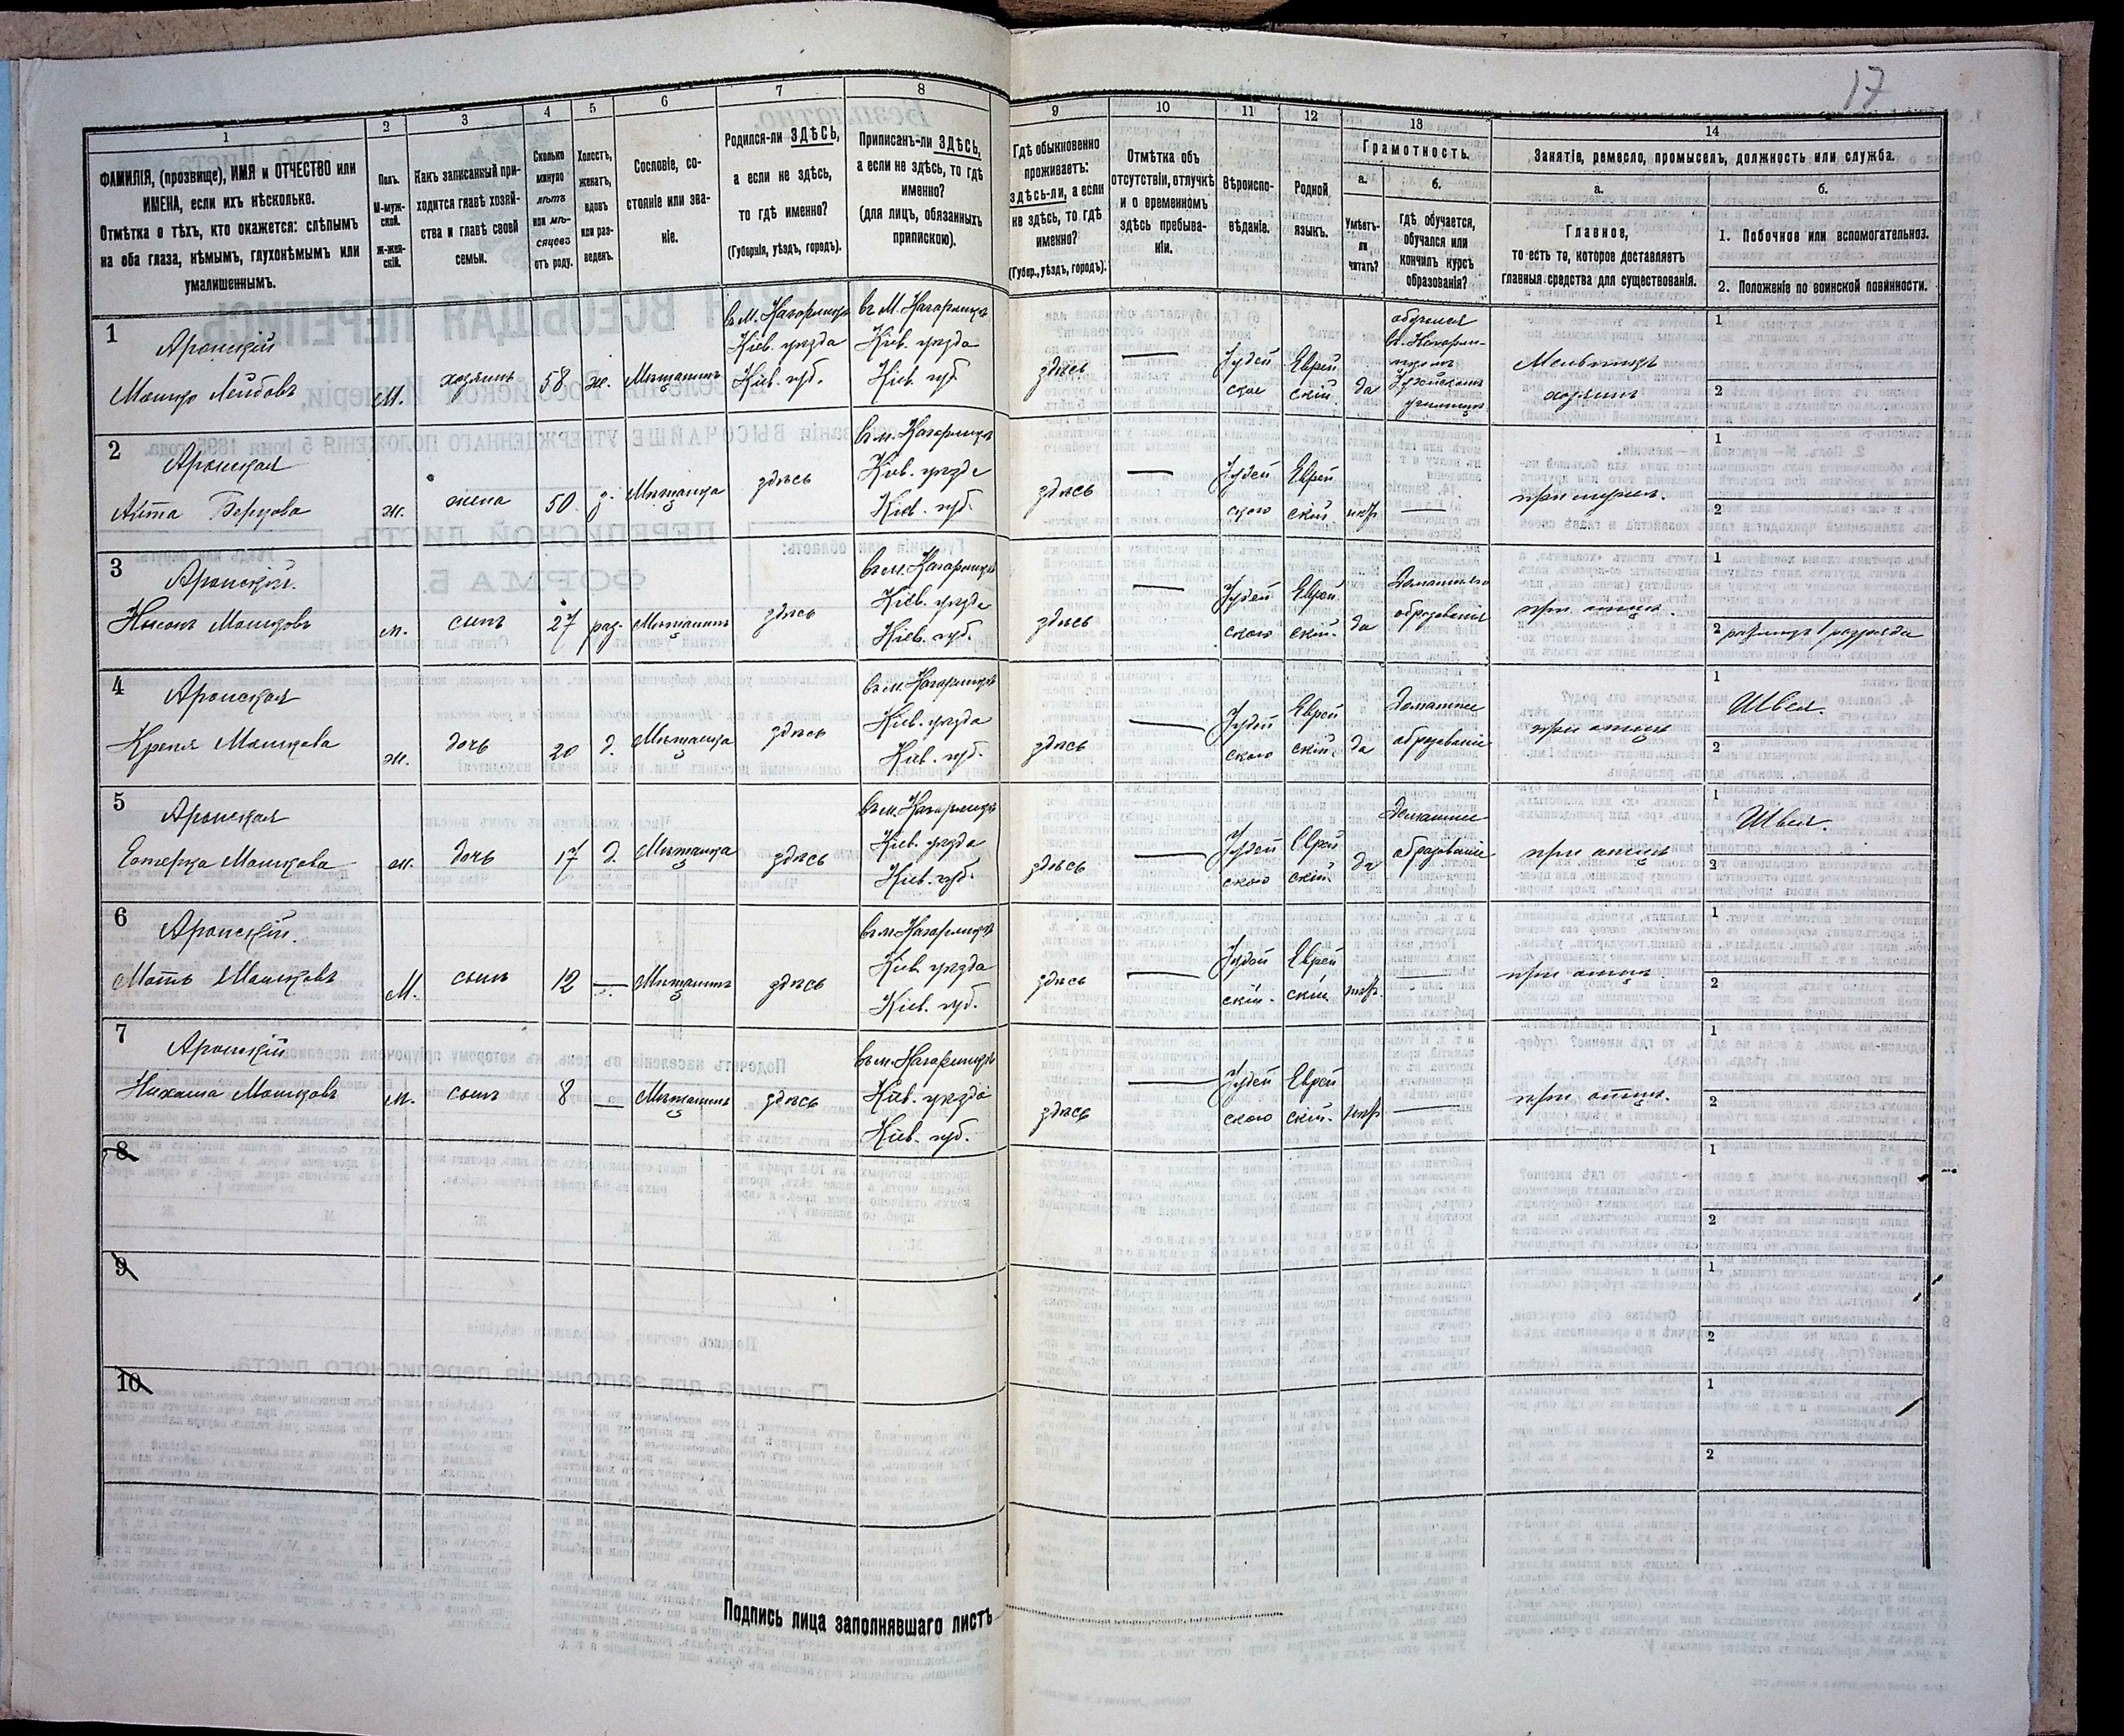 17
1
2
3
4
5
6
7
8
9
10
11
12
13
14
ФАМИЛІЯ, (прозвище), ИМЯ и ОТЧЕСТВО или
ИМЕНА, если ихъ нѣсколько.
Отмѣтка о тѣхъ, кто окажется: слѣпымъ
на оба глаза, нѣмымъ, глухонѣмымъ или
умалишеннымъ.
Полъ.
М-муж-
ской.
Ж-жен-
скій.
Какъ записанный при-
ходится главѣ хозяй-
ства и главѣ своей
семьи.
Сколько
минуло
лѣтъ
или мѣ-
сяцевъ
отъ роду.
Холостъ,
женатъ,
вдовъ
или раз-
веденъ.
Сословіе, со-
стояніе или зва-
ніе.
Родился-ли ЗДѢСЬ,
а если не здѣсь,
то гдѣ именно?
(Губернія, уѣздъ, городъ).
Приписанъ-ли ЗДѢСЬ,
а если не здѣсь, то гдѣ
именно?
(для лицъ, обязанныхъ
припискою).
Гдѣ обыкновенно
проживаетъ:
здѣсь-ли, а если
не здѣсь, то гдѣ
именно?
(Губер., уѣздъ, городъ).
Отмѣтка объ
отсутствіи, отлучкѣ
и о временномъ
здѣсь пребыва-
ніи.
Вѣроиспо-
вѣданіе.
Родной
языкъ.
Грамотность.
а.
Умѣетъ-
ли
читать?
б.
гдѣ обучается,
обучался или
кончилъ курсъ
образованія?
Занятіе, ремесло, промыселъ, должность или служба.
а.
Главное,
то есть то, которое доставляетъ
главныя средства для существованія.
б.
1. Побочное или вспомогательное.
2. Положеніе по воинской повинности.
1
Аронскій
Мошко Лейбовъ
М.
хозяинъ
58
ж.
Мѣщанинъ
въ М. Кагарлыкѣ
Кіев. уѣзда
Кіев. губ.
въ М. Кагарлыкѣ
Кіев. уѣзда
Кіев. губ.
здѣсь
—
Іудей
ское
Еврей
скій
да
обучался
1
2
2
Аронская
Берkова
ж.
жена
50
з.
Мѣщанка
здѣсь
въ м. Кагарлыкѣ
Кіев. уѣзда
Кіев. губ.
здѣсь
—
Іудей
ского
Еврей
скій
нѣт
—
при мужѣ.
1
2
3
Аронскій.
Мошковъ
м.
сынъ
27
Мѣщанинъ
здѣсь
въ м. Кагарлыкѣ
Кіев. уѣзда
Кіев. губ.
здѣсь
—
Іудей
ского
Еврей
скій.
да
образованія
при отцѣ.
1
2 разряда
4
Аронская
Крейня Мошкова
ж.
дочь
20
д.
Мѣщанка
здѣсь
въ м. Кагарлыкѣ
Кіев. уѣзда
Кіев. губ.
здѣсь
—
Іудей
ского
Еврей
скій.
да
Домашнее
образованіе
при отцѣ
1
Швея.
2
5
Аронская
Естерка Мошкова
ж.
дочь
17
д.
Мѣщанка
здѣсь
въ м. Кагарлыкѣ
Кіев. уѣзда
Кіев. губ.
здѣсь
—
Іудей
ского
Еврей
скій.
да
Домашнее
образованіе
при отцѣ
1
Швея.
2
6
Аронскій.
Мошковъ
М.
сынъ
12
—
Мѣщанинъ
здѣсь
въ м. Кагарлыкѣ
Кіев. уѣзда
Кіев. губ.
здѣсь
—
Іудей
скій.
Еврей
скій
нѣт
—
при отцѣ.
1
2
7
Аронскій
Мошковъ
м.
сынъ
8
—
Мѣщанинъ
здѣсь
въ м. Кагарлыкѣ
Кіев. уѣзда
Кіев. губ.
здѣсь
—
Іудей
ского
Еврей
скій.
нѣт
—
при отцѣ.
1
2
8
1
2
9
1
2
10
1
2
Подпись лица заполнявшаго листъ